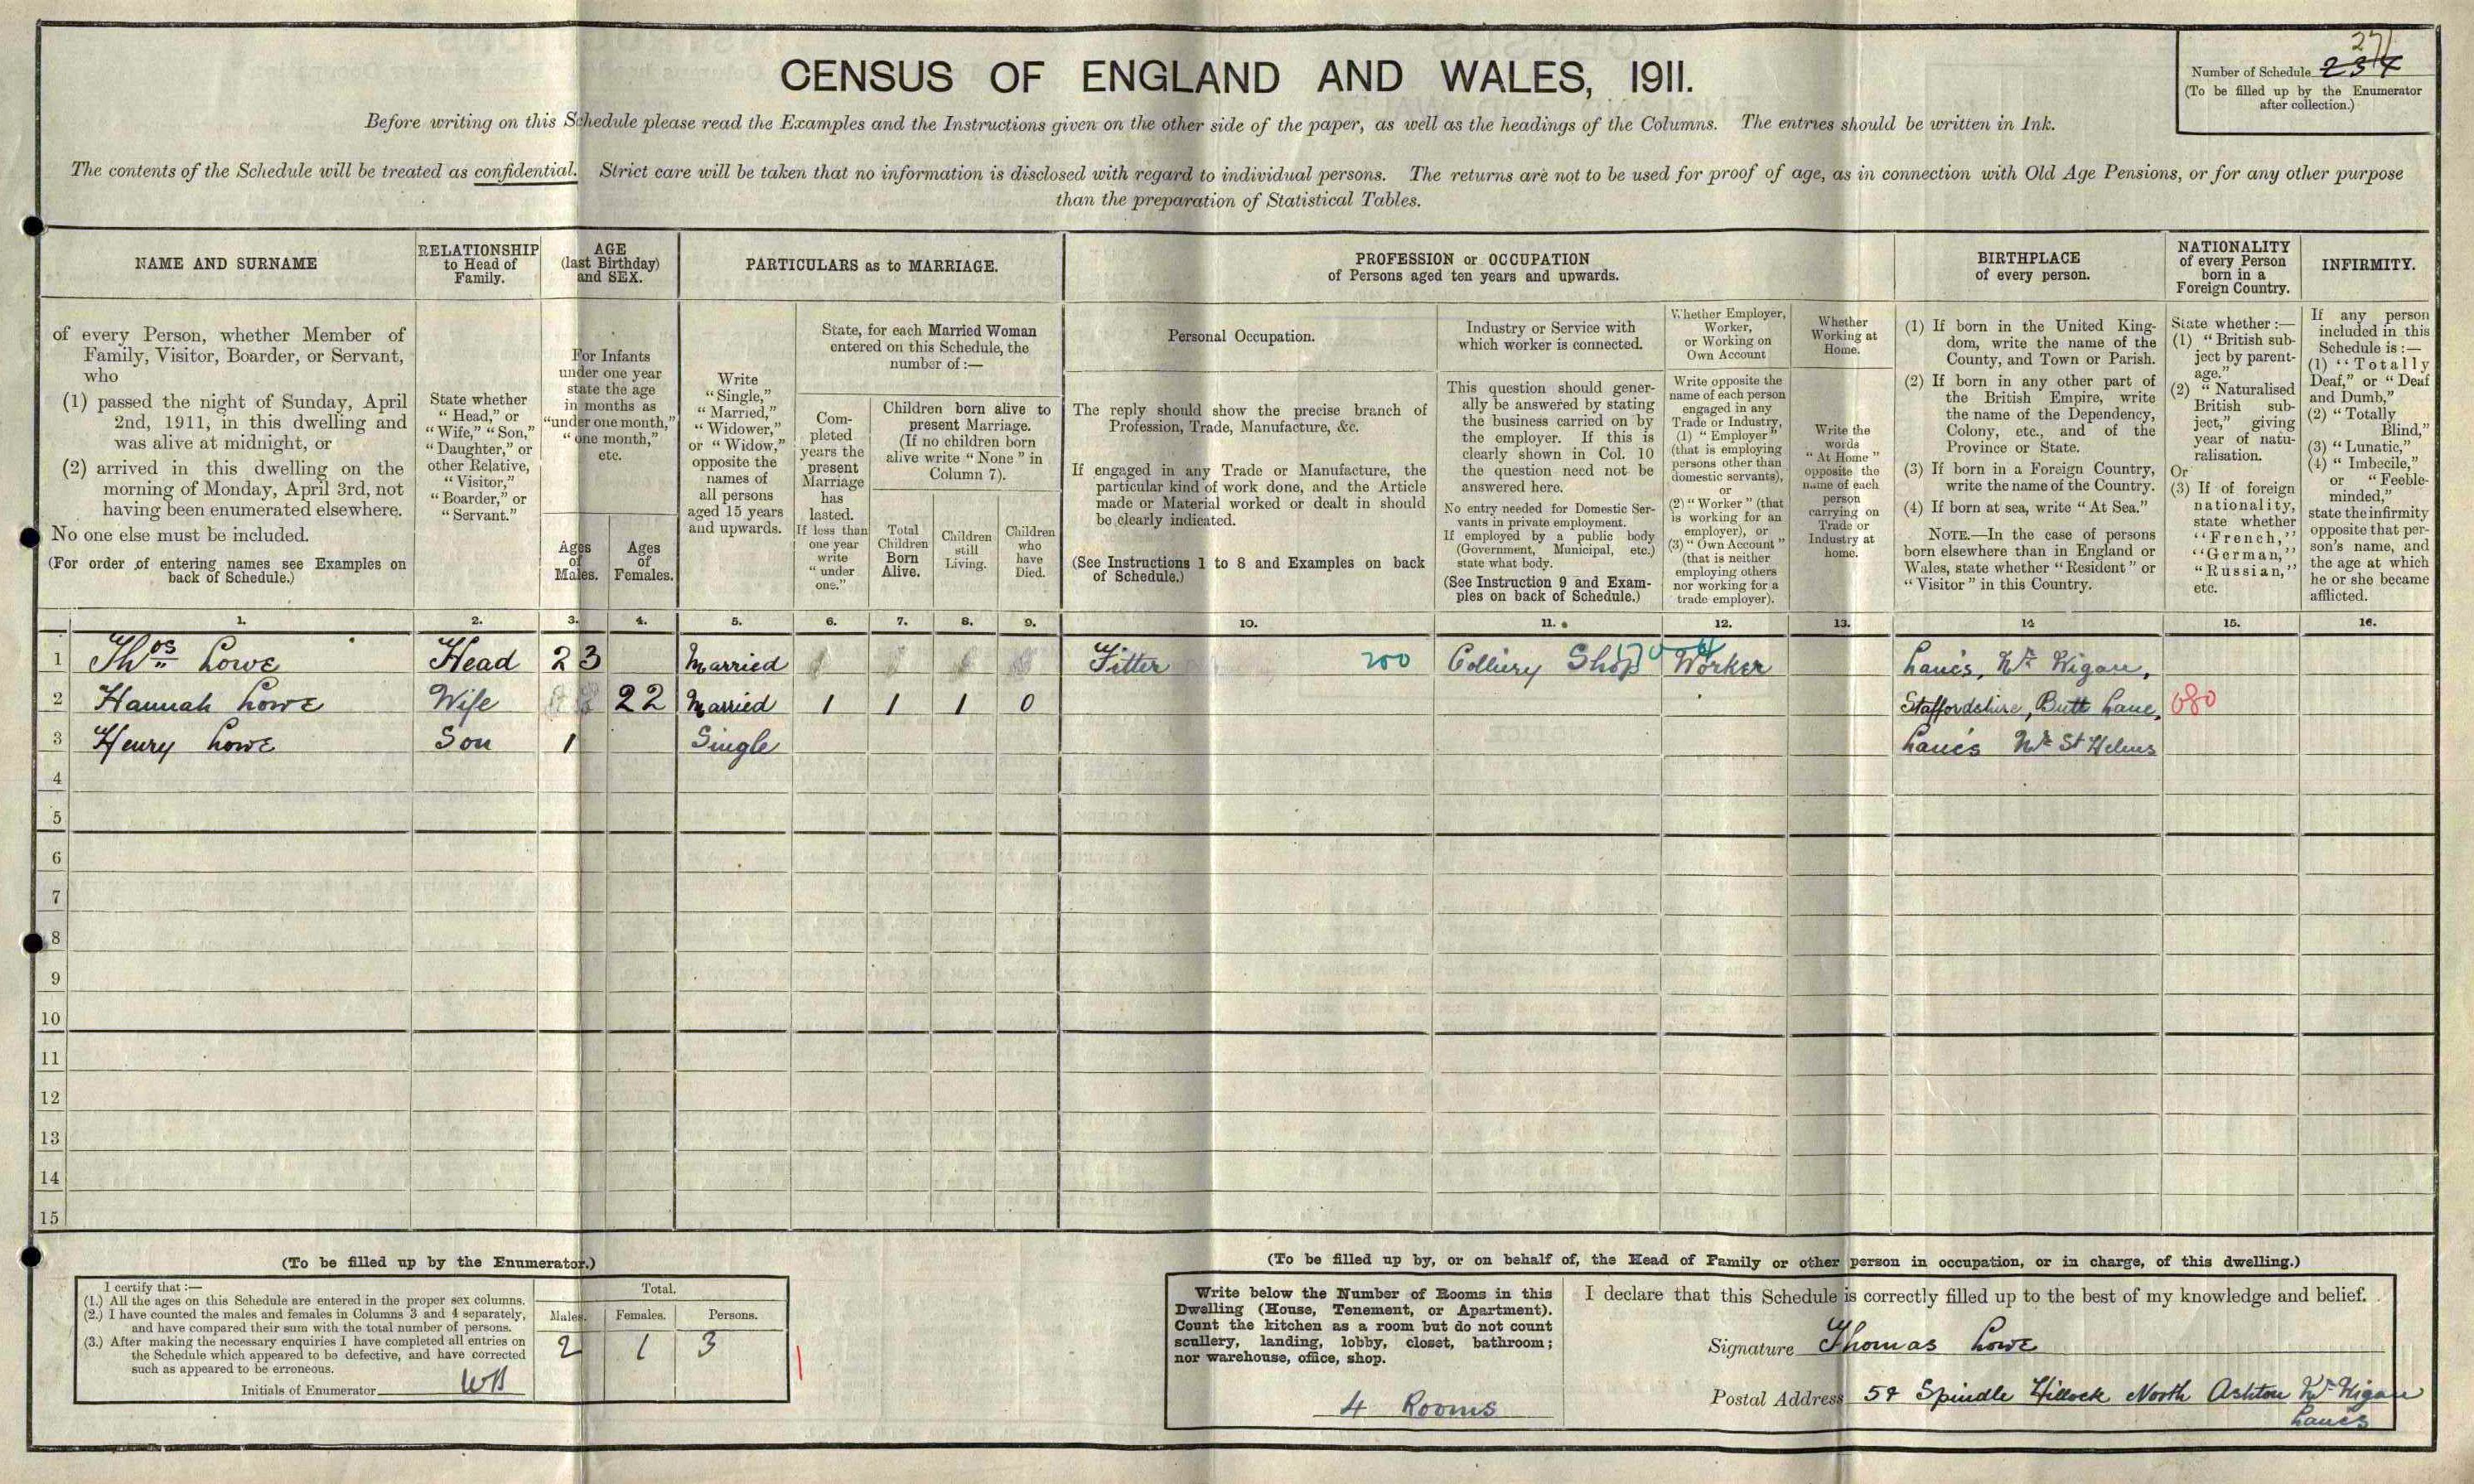 CENSUS OF ENGLAND AND WALES, 1911.
Number of Schedule 234
27
(To be filled up by the Enumerator
after collection.)
Before writing on this Schedule please read the Examples and the Instructions given on the other side of the paper, as well as the headings of the Columns. The entries should be written in Ink.
The contents of the Schedule will be treated as confidential. Strict care will be taken that no information is disclosed with regard to individual persons. The returns are not to be used for proof of age, as in connection with Old Age Pensions, or for any other purpose
than the preparation of Statistical Tables.
NAME AND SURNAME
of every Person, whether Member of
Family, Visitor, Boarder, or Servant,
who
(1) passed the night of Sunday, April
2nd, 1911, in this dwelling and
was alive at midnight, or
(2) arrived in this dwelling on the
morning of Monday, April 3rd, not
having been enumerated elsewhere.
No one else must be included.
(For order of entering names see Examples on
back of Schedule.)
RELATIONSHIP
to Head of
Family.
State whether
"Head," or
"Wife," "Son,"
"Daughter," or
other Relative,
"Visitor,"
"Boarder," or
"Servant."
AGE
(last Birthday)
and SEX.
For Infants
under one year
state the age
in months as
"under one month,"
"one month,"
etc.
Ages
of
Males.
Ages
of
Females.
PARTICULARS as to MARRIAGE.
Write
"Single,"
"Married,"
"Widower,"
or "Widow,"
opposite the
names of
all persons
aged 15 years
and upwards.
State, for each Married Woman
entered on this Schedule, the
number of:—
Com-
pleted
years the
present
Marriage
has
lasted.
If less than
one year
write
"under
one."
Children born alive to
present Marriage.
(If no children born
alive write "None" in
Column 7).
Total
Children
Born
Alive.
Children
still
Living.
Children
who
have
Died.
PROFESSION or OCCUPATION
of Persons aged ten years and upwards.
Personal Occupation.
The reply should show the precise branch of
Profession, Trade, Manufacture, &c.
If engaged in any Trade or Manufacture, the
particular kind of work done, and the Article
made or Material worked or dealt in should
be clearly indicated.
(See Instructions 1 to 8 and Examples on back
of Schedule.)
Industry or Service with
which worker is connected.
This question should gener-
ally be answered by stating
the business carried on by
the employer. If this is
clearly shown in Col. 10
the question need not be
answered here.
No entry needed for Domestic Ser-
vants in private employment.
If employed by a public body
(Government, Municipal, etc.)
state what body.
(See Instruction 9 and Exam-
ples on back of Schedule.)
Whether Employer,
Worker,
or Working on
Own Account
Write opposite the
name of each person
engaged in any
Trade or Industry,
(1) "Employer"
(that is employing
persons other than
domestic servants),
or
(2) "Worker" (that
is working for an
employer), or
(3) "Own Account"
(that is neither
employing others
nor working for a
trade employer).
Whether
Working at
Home.
Write the
words
"At Home"
opposite the
name of each
person
carrying on
Trade or
Industry at
home.
BIRTHPLACE
of every person.
(1) If born in the United King-
dom, write the name of the
County, and Town or Parish.
(2) If born in any other part of
the British Empire, write
the name of the Dependency,
Colony, etc., and of the
Province or State.
(3) If born in a Foreign Country,
write the name of the Country.
(4) If born at sea, write "At Sea."
NOTE.—In the case of persons
born elsewhere than in England or
Wales, state whether "Resident" or
"Visitor" in this Country.
NATIONALITY
of every Person
born in a
Foreign Country.
State whether:—
(1) "British sub-
ject by parent-
age."
(2) "Naturalised
British sub-
ject," giving
year of natu-
ralisation.
Or
(3) If of foreign
nationality,
state whether
"French,"
"German,"
"Russian,"
etc.
INFIRMITY.
If any person
included in this
Schedule is:—
(1) "Totally
Deaf," or "Deaf
and Dumb,"
(2) "Totally
Blind,"
(3) "Lunatic,"
(4) "Imbecile,"
or "Feeble-
minded,"
state the infirmity
opposite that per-
son's name, and
the age at which
he or she became
afflicted.
1. 2. 3. 4. 5. 6. 7. 8. 9. 10. 11. 12. 13. 14 15. 16.
1 Thos Lowe Head 23 Married Fitter 200 Colliery Shop Worker Lancs, Nr Wigan,
2 Hannah Lowe Wife 22 Married 1 1 1 0 Staffordshire, Butt Lane, 080
3 Henry Lowe Son 1 Single Lancs Nr St Helens
4
5
6
7
8
9
10
11
12
13
14
15
(To be filled up by the Enumerator.)
I certify that:—
(1.) All the ages on this Schedule are entered in the proper sex columns.
(2.) I have counted the males and females in Columns 3 and 4 separately,
and have compared their sum with the total number of persons.
(3.) After making the necessary enquiries I have completed all entries on
the Schedule which appeared to be defective, and have corrected
such as appeared to be erroneous.
Initials of Enumerator WB
Total.
Males. Females. Persons.
2 1 3
(To be filled up by, or on behalf of, the Head of Family or other person in occupation, or in charge, of this dwelling.)
Write below the Number of Rooms in this
Dwelling (House, Tenement, or Apartment).
Count the kitchen as a room but do not count
scullery, landing, lobby, closet, bathroom;
nor warehouse, office, shop.
4 Rooms
I declare that this Schedule is correctly filled up to the best of my knowledge and belief.
Signature Thomas Lowe
Postal Address 54 Spindle Hillock North Ashton Nr Wigan
Lancs